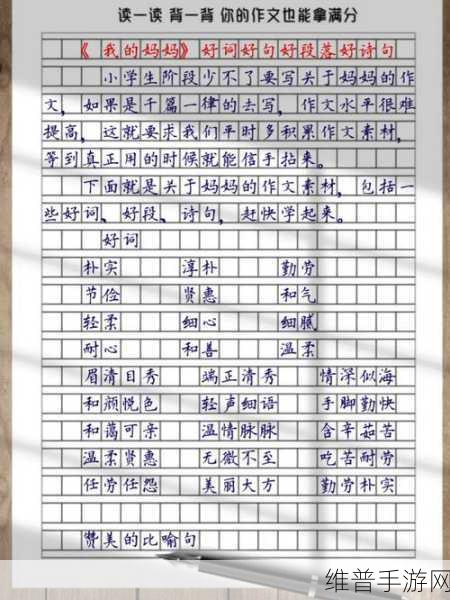 读一读 背一背 你的作文也能拿满分
《我的妈妈》好词好句好段落好诗句
小学生阶段少不了要写关于妈妈的作
文，如果是千篇一律的去写，作文水平很难
提高，这就要求我们平时多积累作文素材，
等到真正用的时候就能信手拈来。
下面就是关于妈妈的作文素材，包括一
些好词、好段、诗句，赶快学起来。
好词
朴实 淳朴 勤劳
节俭 贤惠 和气
轻柔 细心 细腻
耐心 和善 温柔
眉清目秀 端正清秀 情深似海
和颜悦色 轻声细语 手脚勤快
和蔼可亲 温情脉脉 含辛茹苦
温柔贤惠 无微不至 吃苦耐劳
任劳任怨 美丽大方 勤劳朴实
赞美的比喻句
维普手游网